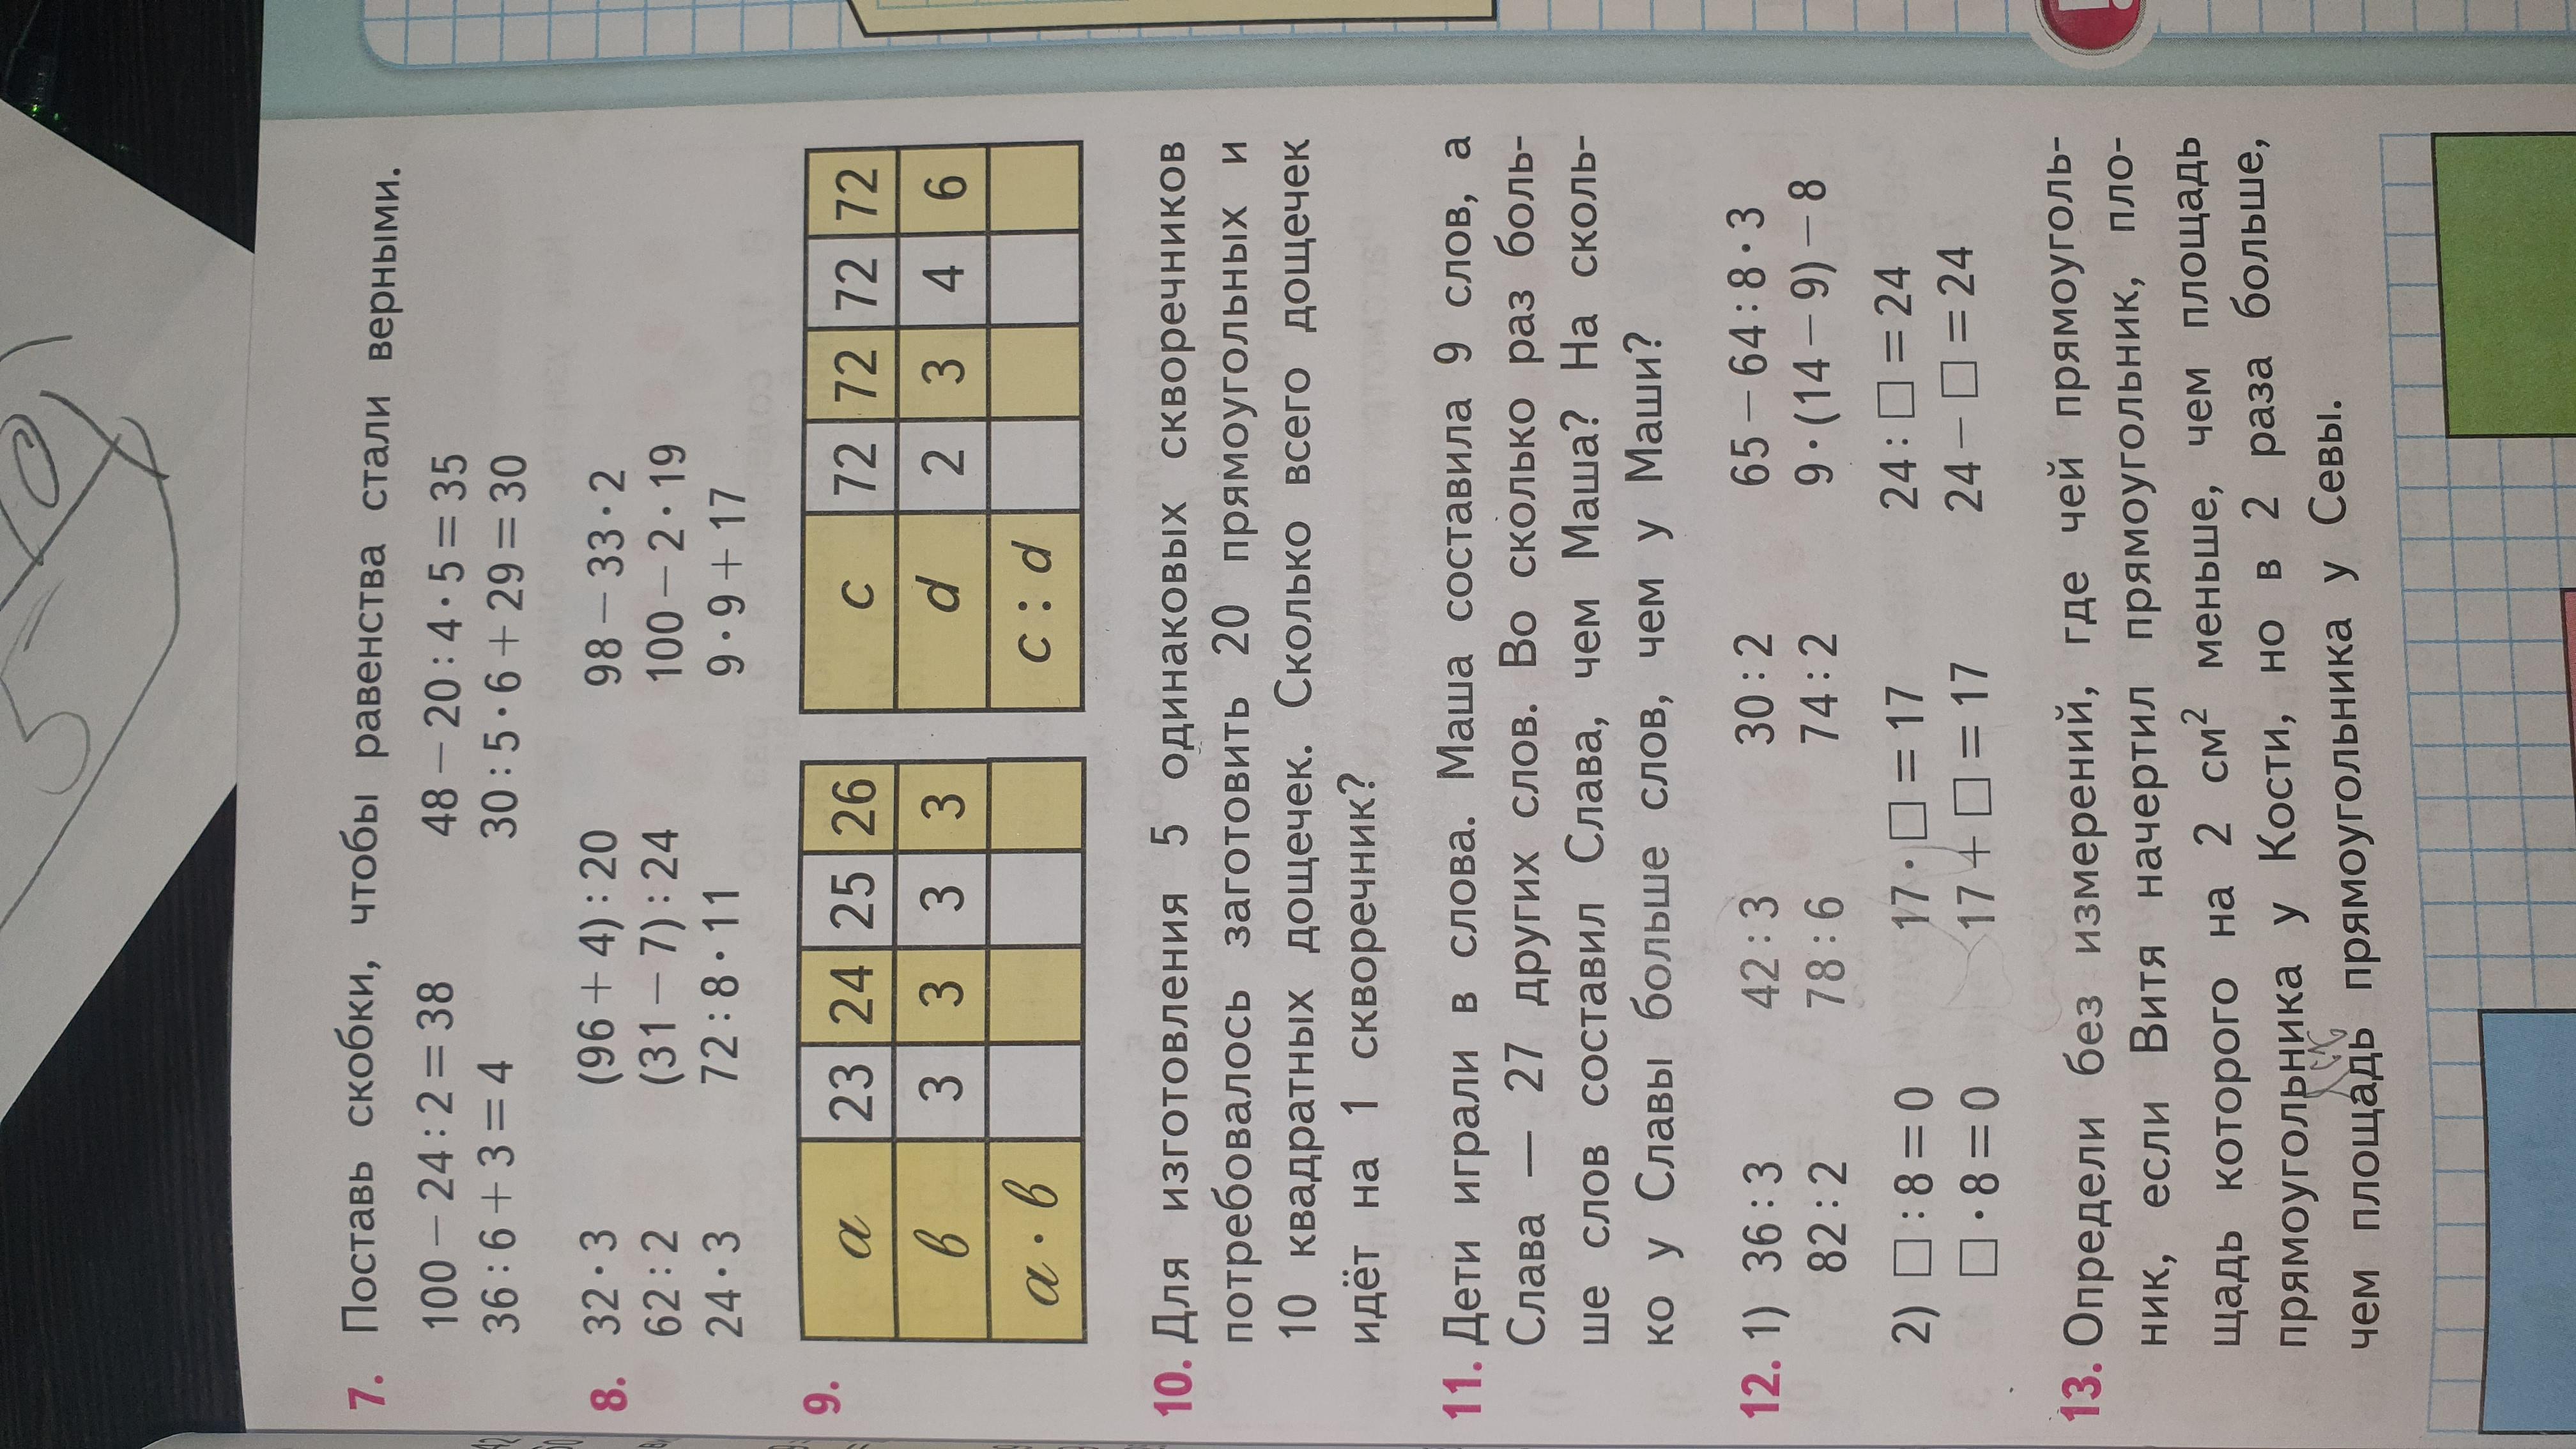 7. Поставь скобки, чтобы равенства стали верными.
100 − 24 : 2 = 38 48 − 20 : 4 · 5 = 35
36 : 6 + 3 = 4 30 : 5 · 6 + 29 = 30
8. 32 · 3 (96 + 4) : 20 98 − 33 · 2
62 : 2 (31 − 7) : 24 100 − 2 · 19
24 · 3 72 : 8 · 11 9 · 9 + 17
9.
a 23 24 25 26 c 72 72 72 72
в 3 3 3 3 d 2 3 4 6
a · в c : d
10. Для изготовления 5 одинаковых скворечников
потребовалось заготовить 20 прямоугольных и
10 квадратных дощечек. Сколько всего дощечек
идёт на 1 скворечник?
11. Дети играли в слова. Маша составила 9 слов, а
Слава — 27 других слов. Во сколько раз боль-
ше слов составил Слава, чем Маша? На сколь-
ко у Славы больше слов, чем у Маши?
12. 1) 36 : 3 42 : 3 30 : 2 65 − 64 : 8 · 3
82 : 2 78 : 6 74 : 2 9 · (14 − 9) − 8
2) □ : 8 = 0 17 · □ = 17 24 : □ = 24
□ · 8 = 0 17 + □ = 17 24 − □ = 24
13. Определи без измерений, где чей прямоуголь-
ник, если Витя начертил прямоугольник, пло-
щадь которого на 2 см² меньше, чем площадь
прямоугольника у Кости, но в 2 раза больше,
чем площадь прямоугольника у Севы.